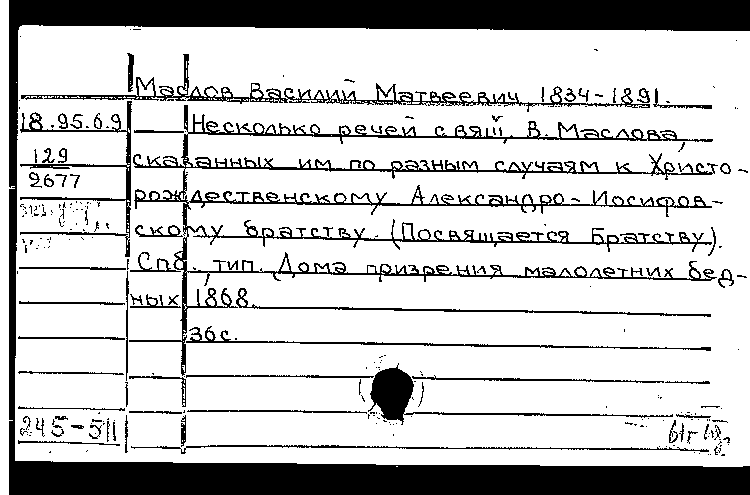 Маслов, Василий Матвеевич, 1834-1891.
18.95.6.9 Несколько речей свящ. В. Маслова,
129 сказанных им по разным случаям к Христо-
2677
рождественскому Александро-Иосифов-
скому братству. (Посвящается Братству).
Спб., тип. Дома призрения малолетних бед-
ных, 1868.
36 с.
245-511
61г